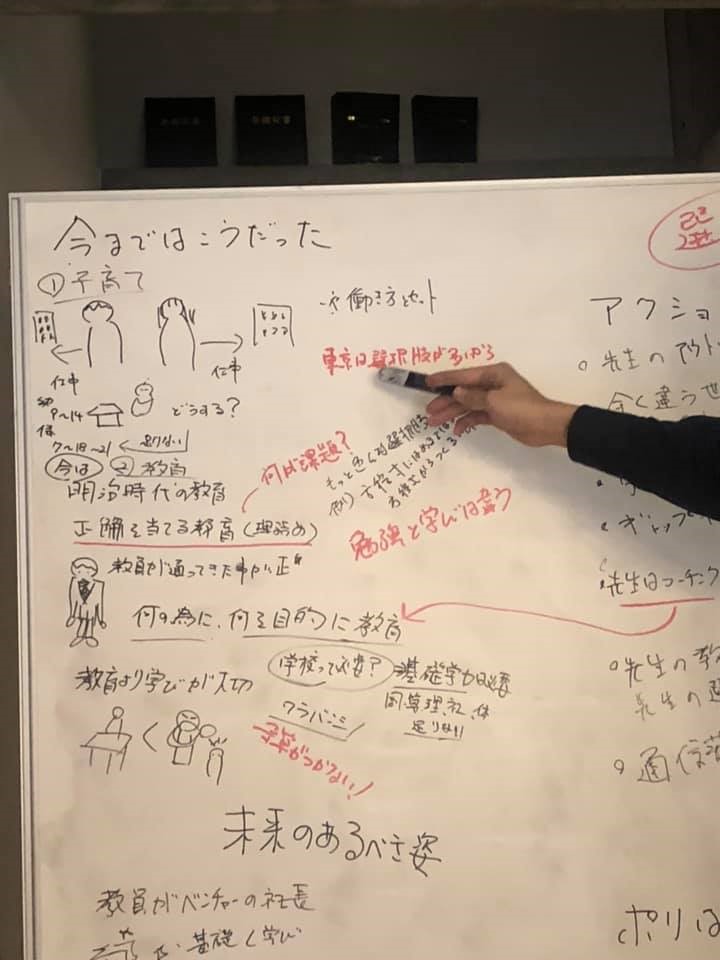 今まではこうだった
①子育て
※働き方とセット
仕事
仕事
東京は選択肢があるから
幼 9〜14
どうする?
保 7〜18〜21
足りない
今は
②教育
何が課題?
もっと色んな選択肢
明治時代の教育
正解を当てる教育(理詰め)
勉強と学びは違う
教員が通ってきた中が正
何の為に、何を目的に教育
学校って必要?
基礎学力は必要
教育より学びが大切
国算理社、体
足りない
クラバンミ
未来のあるべき姿
教員がベンチャーの社長
基礎く学び
アクショ
先生のアウト
全く違う世
ギャップ
先生はコーチング
先生の教
先生の選
通信
ポリは
選